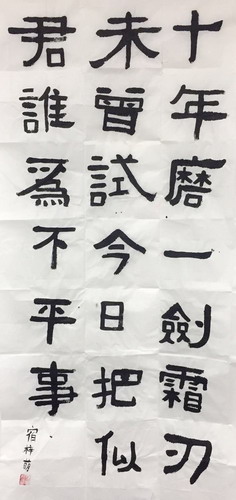 十年磨一劍霜刃
未曾試今日把似
君誰為不平事